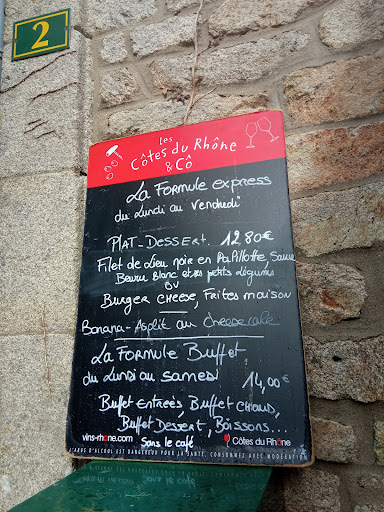 2
Les
Côtes du Rhône
& Cô
La Formule express
du Lundi au vendredi
Plat-Dessert.. 12.80€
Filet de Lieu noir en Papillotte, Sauce
Beurre Blanc et ses petits légumes
ou
Burger cheese, Frites maison
Banana-Asplit ou cheese cake
La Formule Buffet
du Lundi au samedi 14,00€
Buffet Entrées, Buffet Chaud,
Buffet Dessert, Boissons...
vins-rhone.com Sans le café Côtes du Rhône
L'ABUS D'ALCOOL EST DANGEREUX POUR LA SANTÉ, CONSOMMEZ AVEC MODÉRATION